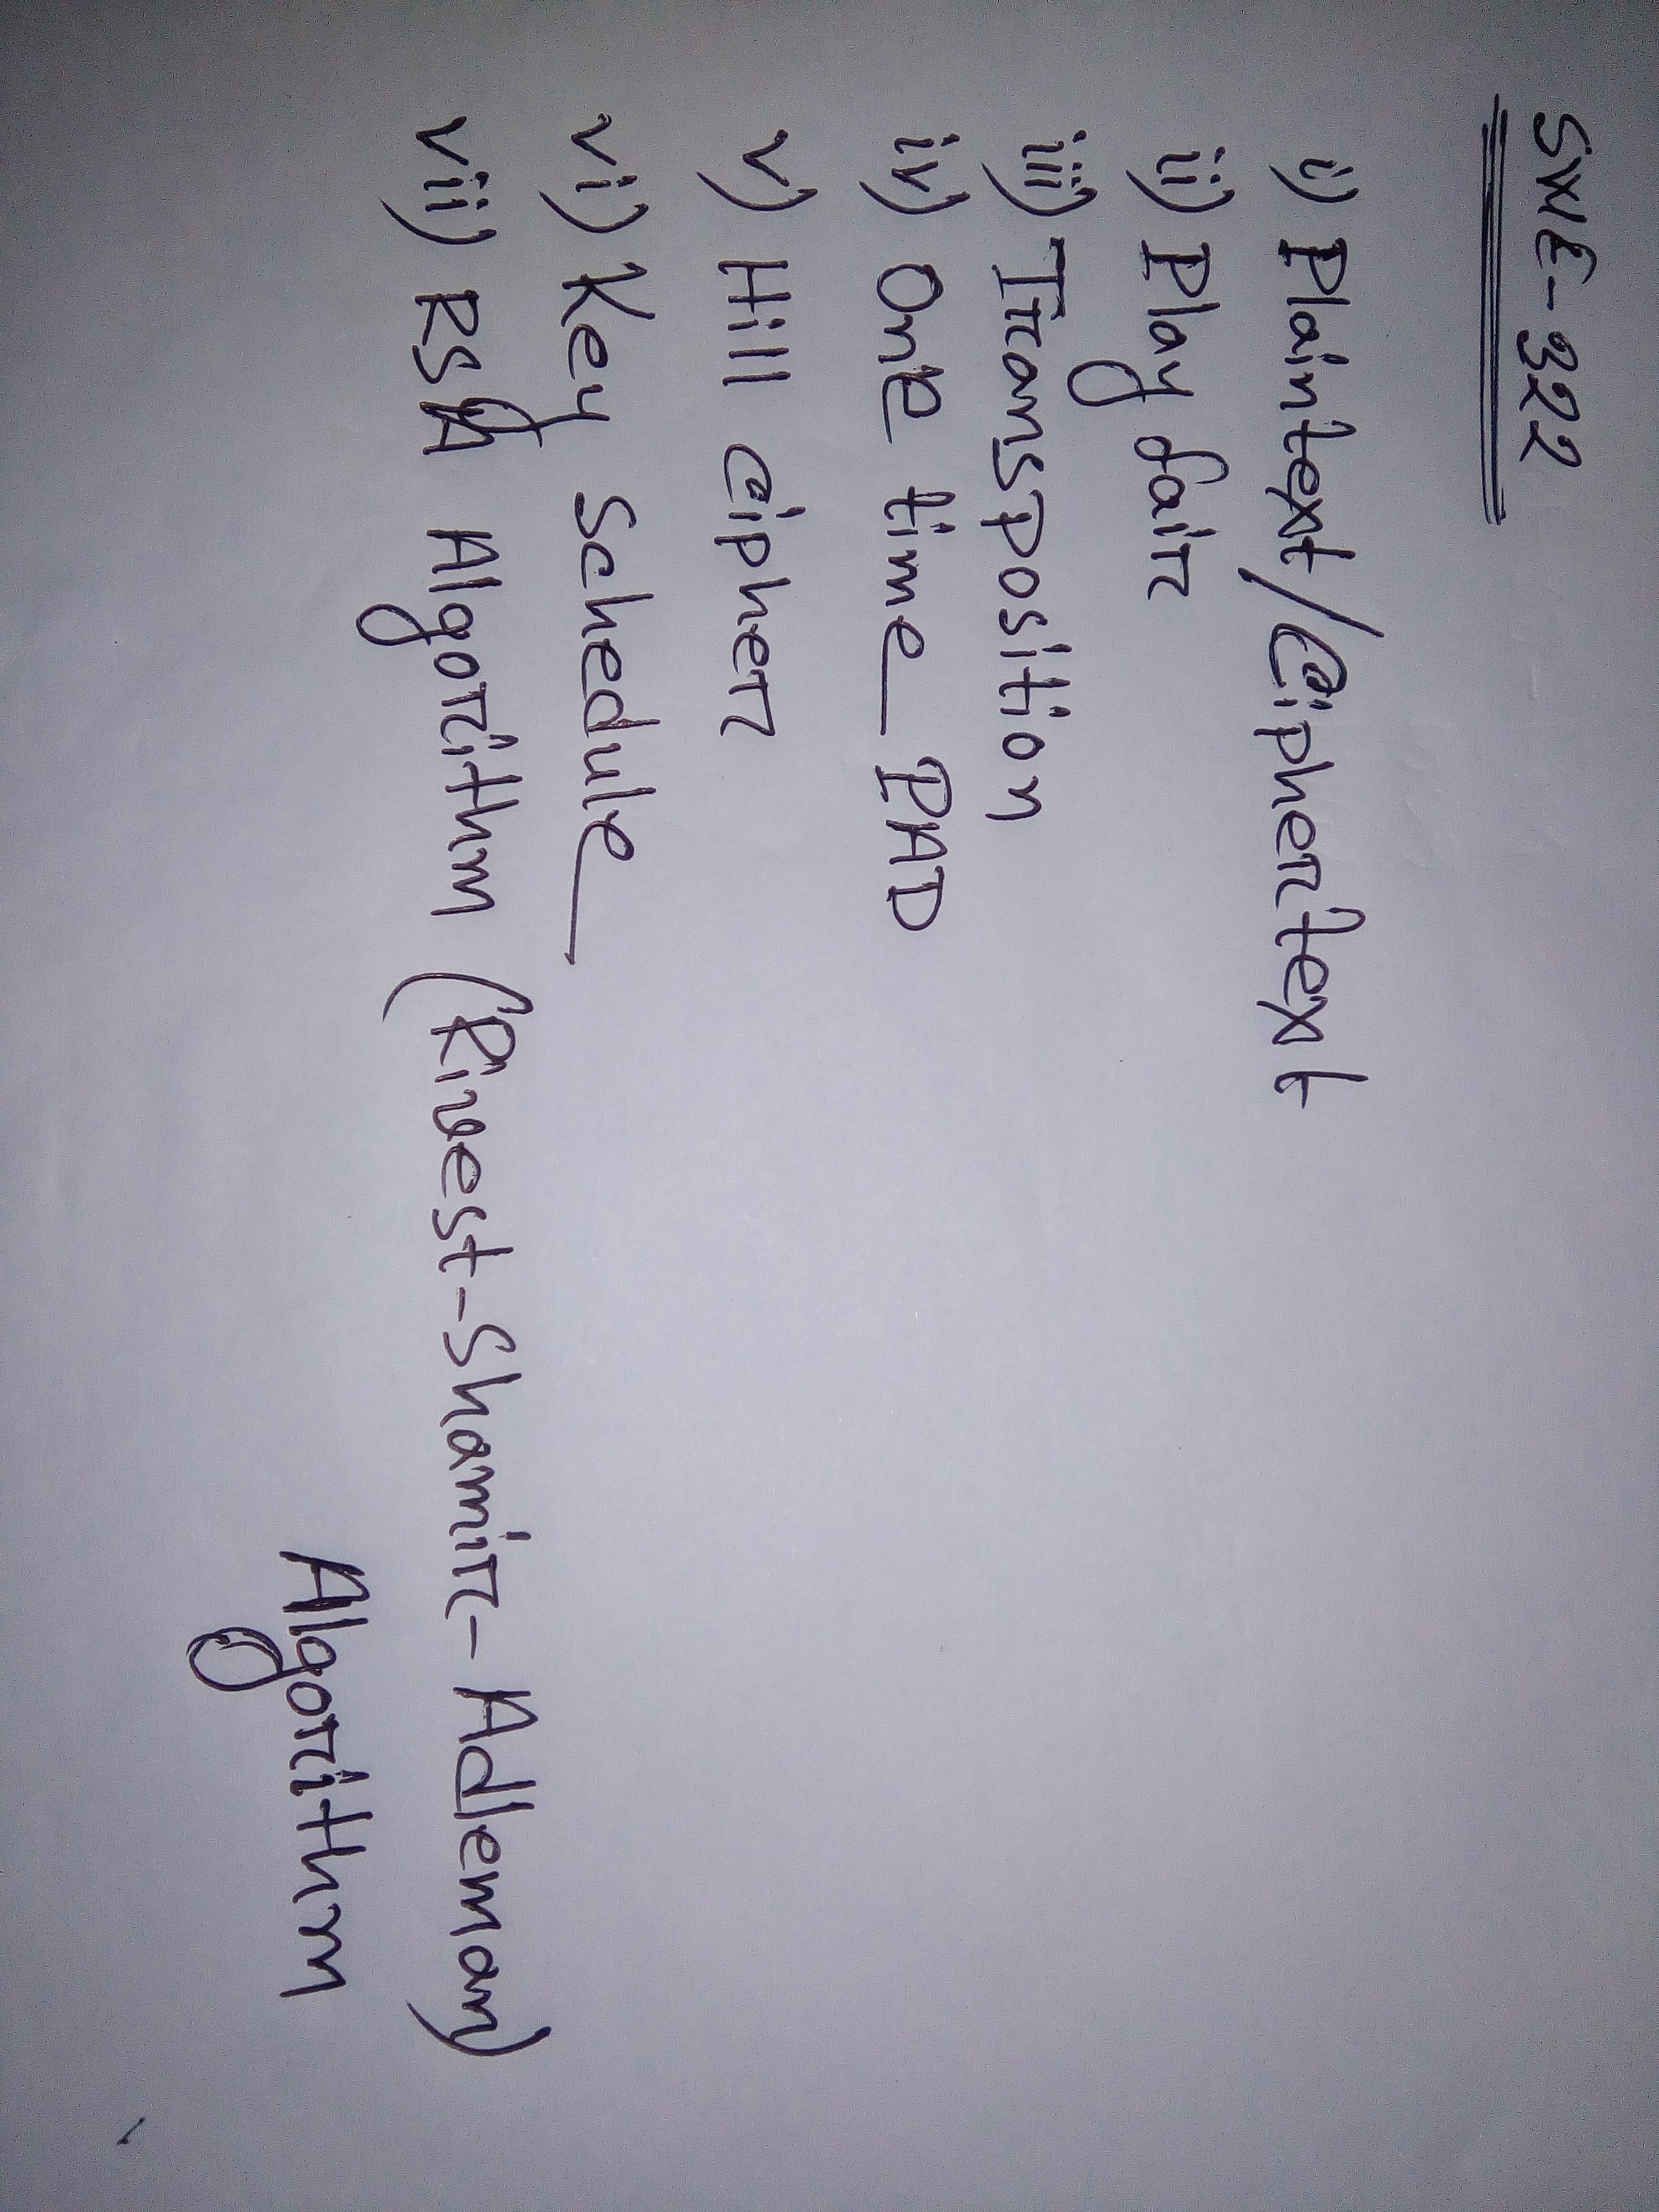 SWE-322
i) Plaintext/Ciphertext
ii) Play fair
iii) Transposition
iv) One time PAD
v) Hill cipher
vi) Key Schedule
vii) RSA Algorithm (Rivest-Shamir-Adleman)
Algorithm